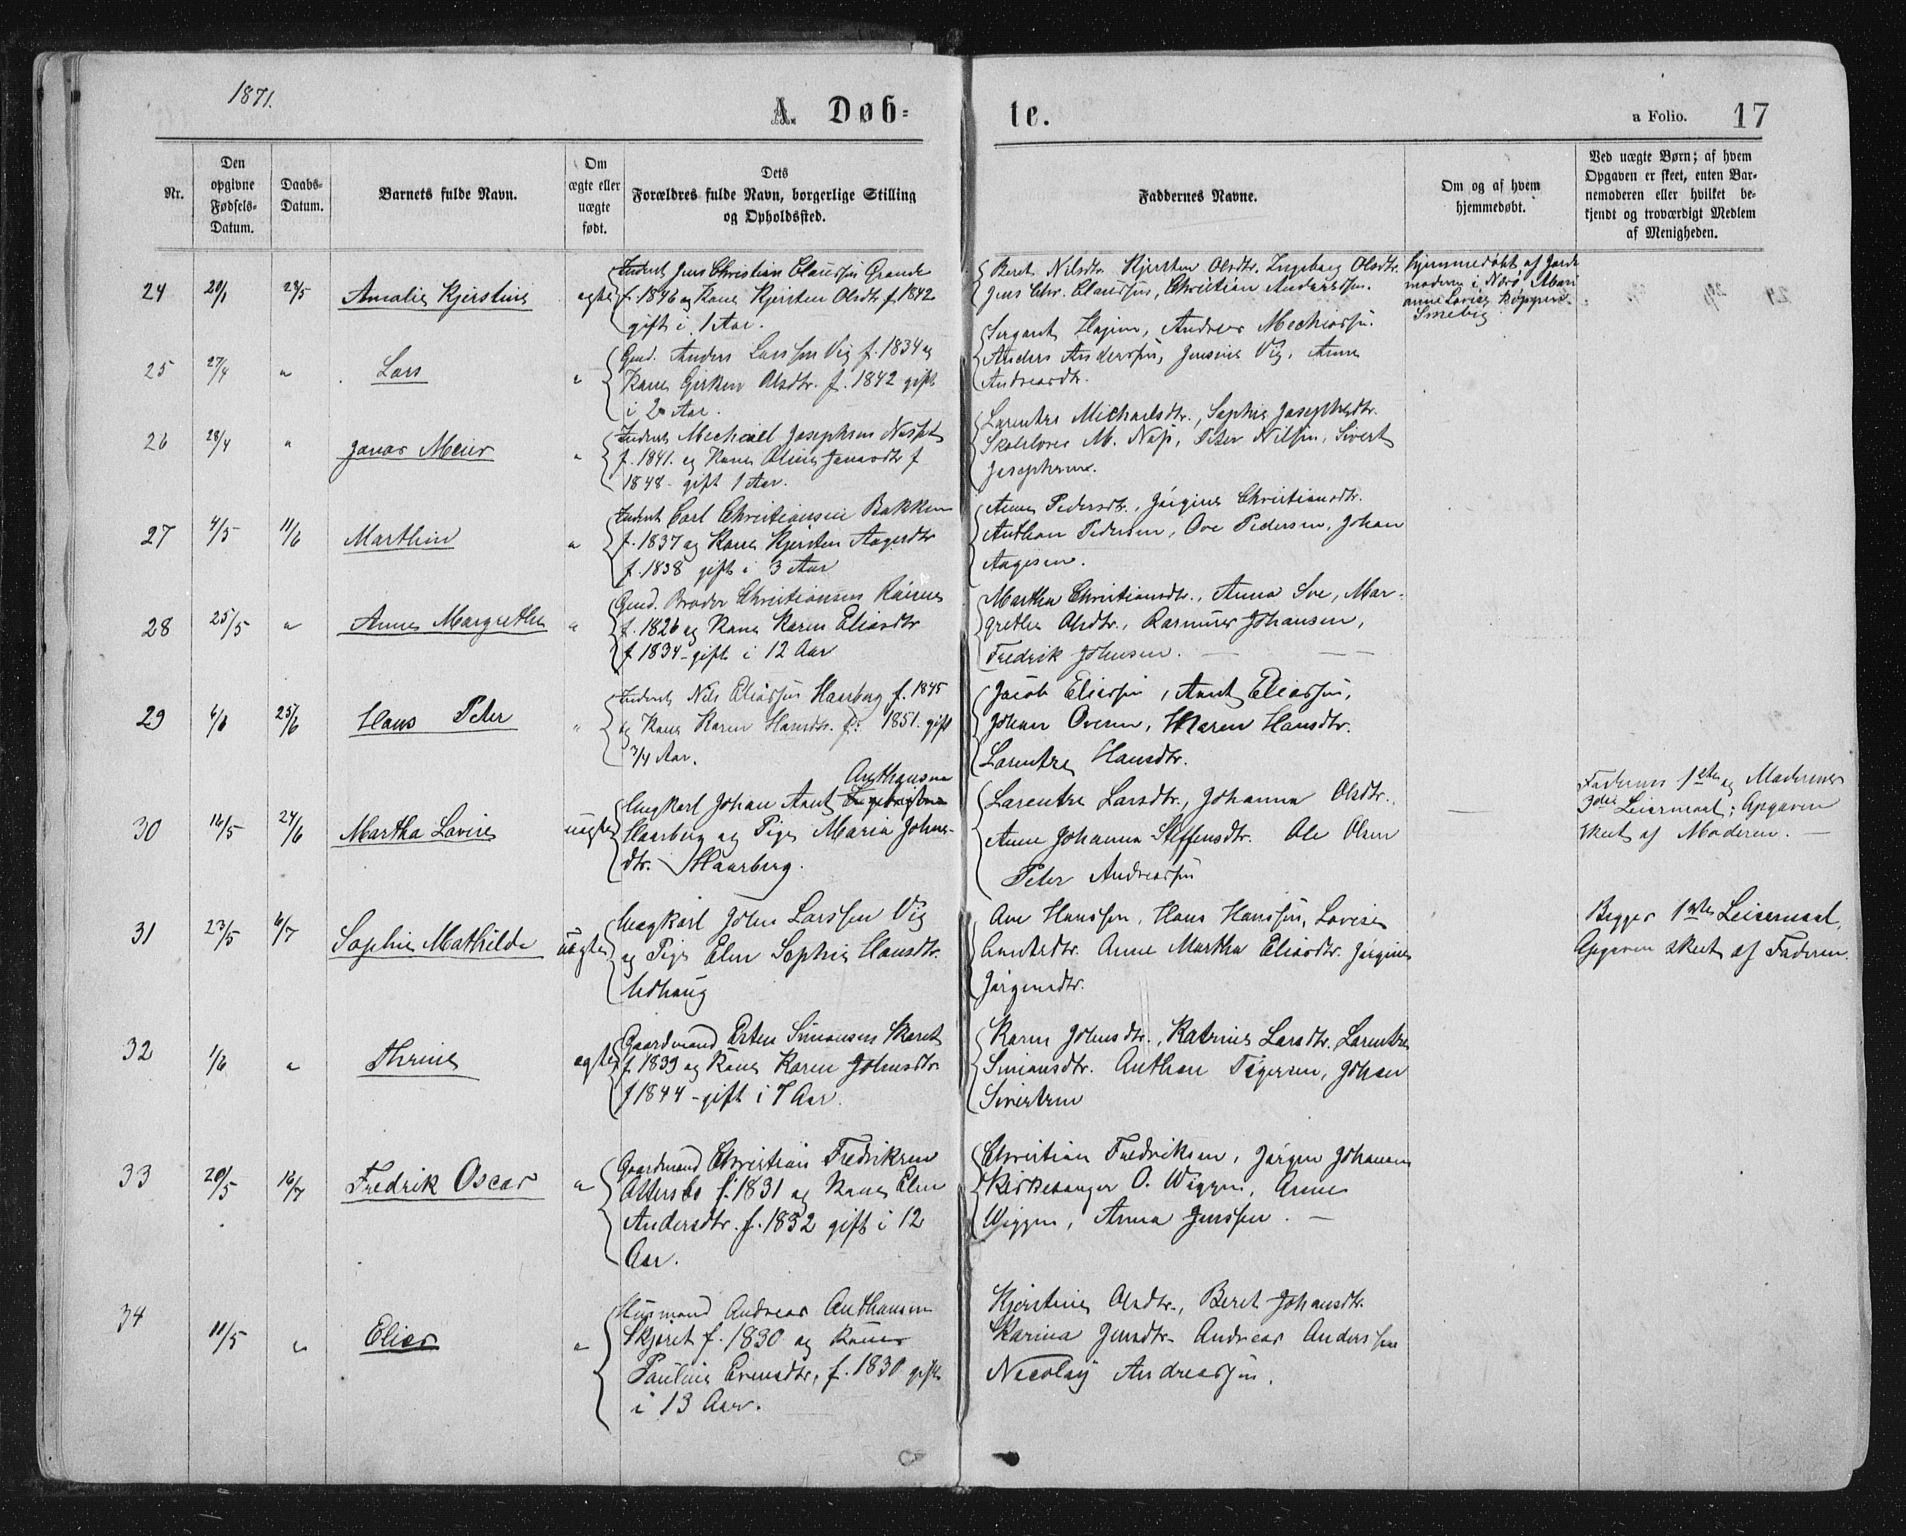 1871.
A. Døb=
te.
a Folio. 17
Nr.
Den opgivne Fødsels-Datum.
Daabs-Datum.
Barnets fulde Navn.
Om ægte eller uægte født.
Dets Forældres fulde Navn, borgerlige Stilling og Opholdssted.
Faddernes Navne.
Om og af hvem hjemmedøbt.
Ved uægte Børn; af hvem Opgaven er skeet, enten Barnemoderen eller hvilket bekjendt og troværdigt Medlem af Menigheden.
24 20/1 29/5 Amalie Kjerstine ægte
Inderst Jens Christian Claussen Grande
f. 1846 og Kone Kjersten Olsdtr f. 1842
gift i 1 Aar.
Beret Nilsdtr. Kjersten Olsdtr. Ingeborg Olsdtr.
Jens Chr. Claussen, Christian Anderssen.
hjemmedøbt af Jorde
moderen i Mari
anne Lovise
25 27/4 " Lars "
Gmd. Anders Larssen Vig f. 1834 og
Kone Gjerken Olsdtr. f. 1842 gift
i 2 Aar.
Sergant Andreas Mechiorsen.
Anders Anderssen, Jensine Vig, Anne
Andreasdtr.
26 28/4 " Jonas Meier "
Inderst Michael Josephsen
f. 1841. og Kone Oline Jonasdtr f
1848 - gift 1 Aar.
Larentse Michaelsdtr., Sophie Josephsdtr.
M. Peter Nilsen, Sivert
Josephsen.
27 4/5 11/6 Marthin "
Inderst Carl Christiansen Bakken
f. 1837 og Kone Kjersten Aagesdtr
f. 1838 gift i 3 Aar
Anne Pedersdtr., Jørgine Christiansdtr.
Anthon Pedersen, Ove Pedersen, Johan
Aagesen.
28 25/5 " Anne Margrethe "
Gmd. Broder Christiansen
f. 1826 og Kone Karen Eliasdtr
f 1834 - gift i 12 Aar
Martha Christiansdtr., Anna Mar-
grethe Olsdtr., Rasmus Johansen,
Fredrik Johnsen. —
29 4/6 25/6 Hans Peter "
Inderst Nils Eliassen Haarberg f. 1845
og Kone Karen Hansdtr. f. 1851. gift
3/4 Aar.
Jacob Eliassen, Arnt Eliassen,
Johan Ovesen, Maren Hansdtr.
Larentse Hansdtr.
30 16/5 24/6 Martha Lovise uægte
Anthonsen
Ungkarl Johan Arnt
Haarberg og Pige Maria Johns-
dtr. Haarberg.
Larentse Larsdtr., Johanna Olsdtr.,
Anne Johanna Steffensdtr. Ole Olsen
Peter Andreassen
Faderens 1ste og Moderens
Leiermaal; Opgaven
skeet af Moderen. —
31 23/5 4/7 Sophie Mathilde uægte
Ungkarl John Larssen Vig
og Pige Elen Sophie Hansdtr.
Udhaug
Ane Hanssen, Hans Hanssen, Lovise
Arntsdtr. Anne Martha Eliasdtr. Jørgine
Jørgensdtr.
Begges 1ste Leiermaal,
Opgaven skeet af Faderen.
32 1/6 " Thrine ægte
Gaardmand Esten Simonsen Skaret
f. 1839 og Kone Karen Johnsdtr
f 1844 - gift i 7 Aar.
Karen Johnsdtr., Katrine Larsdtr. Larentse
Simonsdtr. Anthon Johan
Sivertsen
33 20/5 16/7 Fredrik Oscar "
Gaardmand Christian Fredriksen
f. 1831 og Kone Elen
Andersdtr. f. 1832 gift i 12
Aar.
Christian Fredriksen, Jørgen Johansen
Kirkesanger O. Wiggen, Anne
Wiggen, Anna Jenssen. —
34 11/5 " Elias "
Husmand Andreas Anthonsen
Skjeret f. 1830 og Kone
Pauline Evensdtr, f. 1830 gift
i 13 Aar.
Kjerstine Olsdtr., Beret Johansdtr.
Karina Jensdtr. Andreas Anderssen
Nicolay Andreassen.